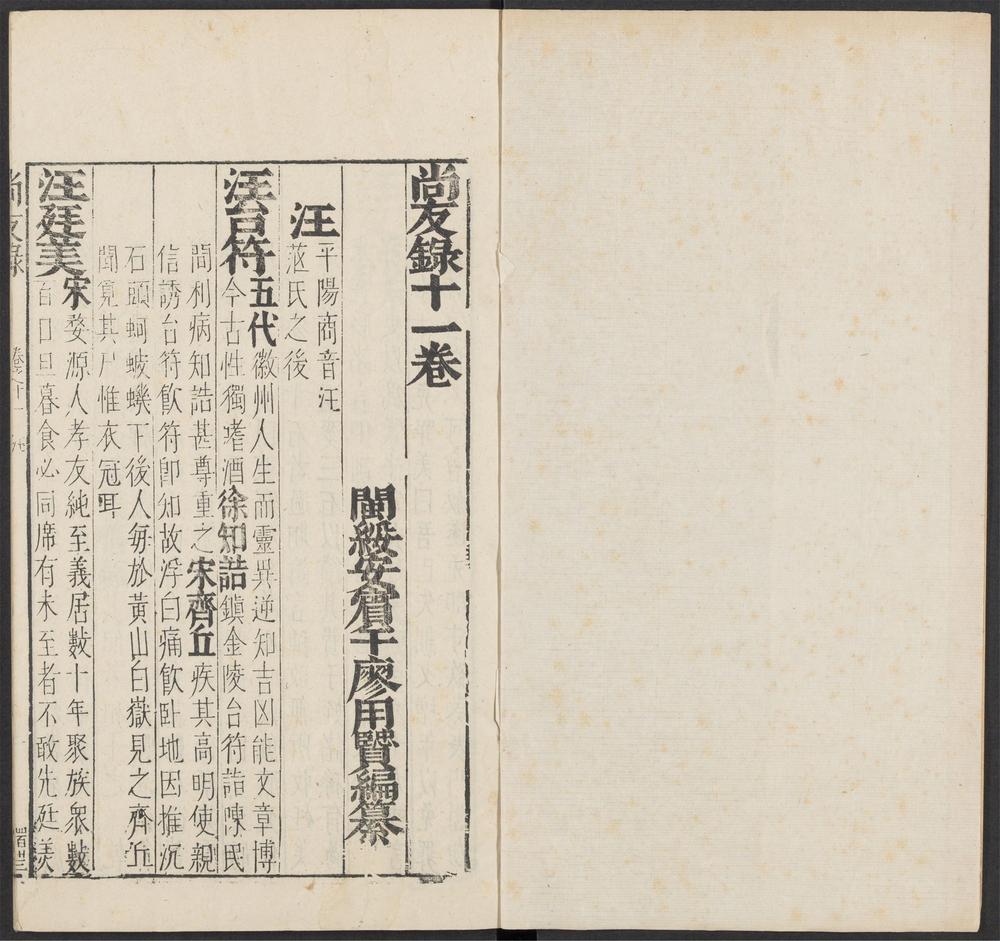 尚友錄十一卷
閩綏安賓于廖用賢編纂
汪
平陽商音汪
𣲖氏之後
汪台符
五代徽州人生而靈異逆知吉凶能文章博
今古性獨嗜酒徐知誥鎮金陵台符詣陳民
間利病知誥甚尊重之宋齊丘疾其高明使親
信誘台符飲符卽知故浮白痛飲卧地因推沉
石頭蚵蚾磯下後人每於黃山白嶽見之齊丘
聞覓其尸惟衣冠耳
汪廷美
宋婺源人孝友純至義居數十年聚族衆數
百口旦暮食必同席有未至者不敢先廷美
尚友錄
卷之十一